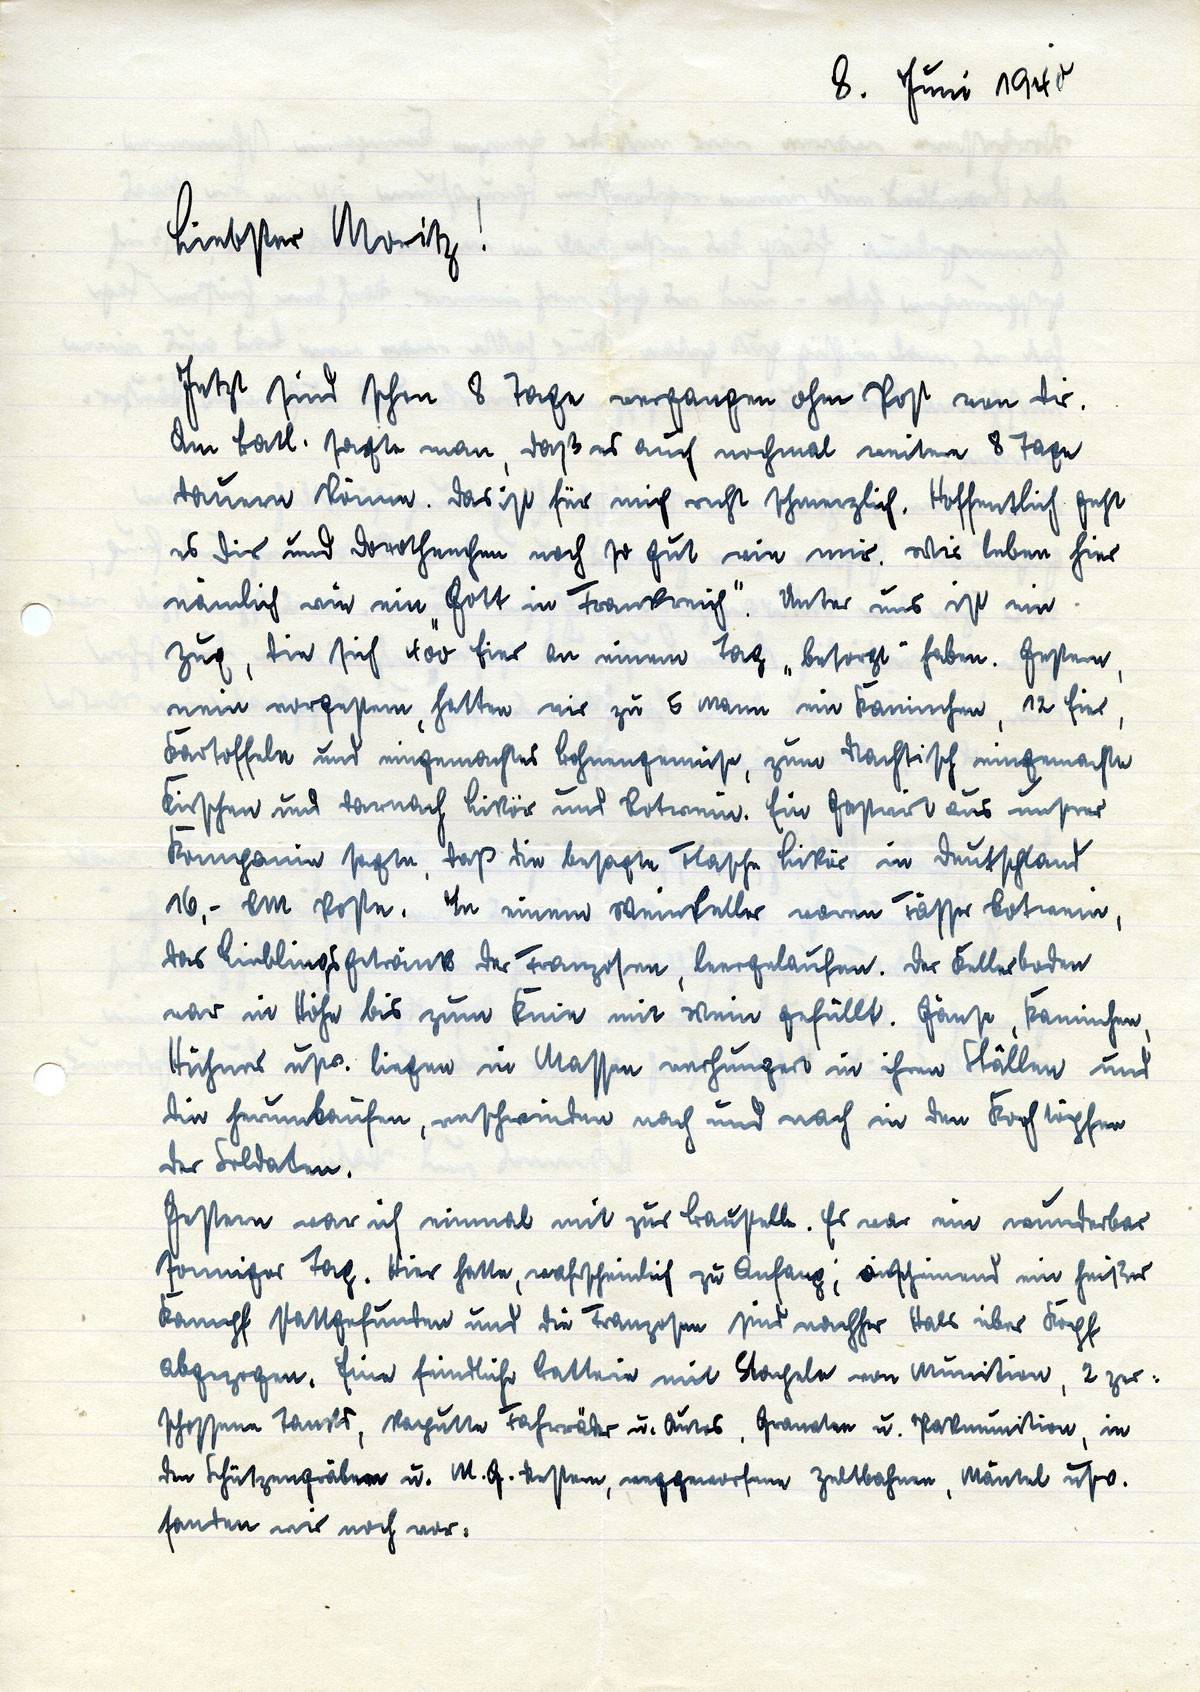 8. Juni 1940
Liebster Moritz!
Jetzt sind schon 8 Tage vergangen ohne Post von Dir.
Am Batl. sagte man, daß es auch nochmal weitere 8 Tage
dauern könne. Das ist für mich recht schmerzlich. Hoffentlich geht
es Dir und Dorotheechen noch so gut wie mir. Wir leben hier
nämlich wie ein „Gott in Frankreich". Unter uns ist ein
Zug, die sich 400 Eier an einem Tag „besorgt" haben. Gestern,
nein vorgestern, hatten wir zu 5 Mann ein Kaninchen, 12 Eier,
Kartoffeln und eingemachtes Bohnengemüse, zum Nachtisch eingemachte
Kirschen und darnach Likör und Rotwein. Ein Gastwirt aus unsrer
Kompanie sagte, daß die besagte Flasche Likör in Deutschland
16,- RM koste. In einem Weinkeller waren Fässer Rotwein,
das Lieblingsgetränk der Franzosen, leergelaufen. Der Kellerboden
war in Höhe bis zum Knie mit Wein gefüllt. Gänse, Kaninchen,
Hühner usw. liegen in Massen verhungert in ihren Ställen und
die herumlaufen, verschwinden nach und nach in den Kochtöpfen
der Soldaten.
Gestern war ich einmal mit zur Baustelle. Es war ein wunderbar
sonniger Tag. Hier hatte, wahrscheinlich zu Anfang, anscheinend ein heißer
Kampf stattgefunden und die Franzosen sind nachher Hals über Kopf
abgezogen. Eine feindliche Batterie mit Stapeln von Munition, 2 zer-
schossene Tanks, kaputte Fahrräder u. Autos, Granaten u. Pakmunition, in
den Schützengräben u. M.G. Nestern, weggeworfene Zeltbahnen, Mäntel usw.
fanden wir noch vor.